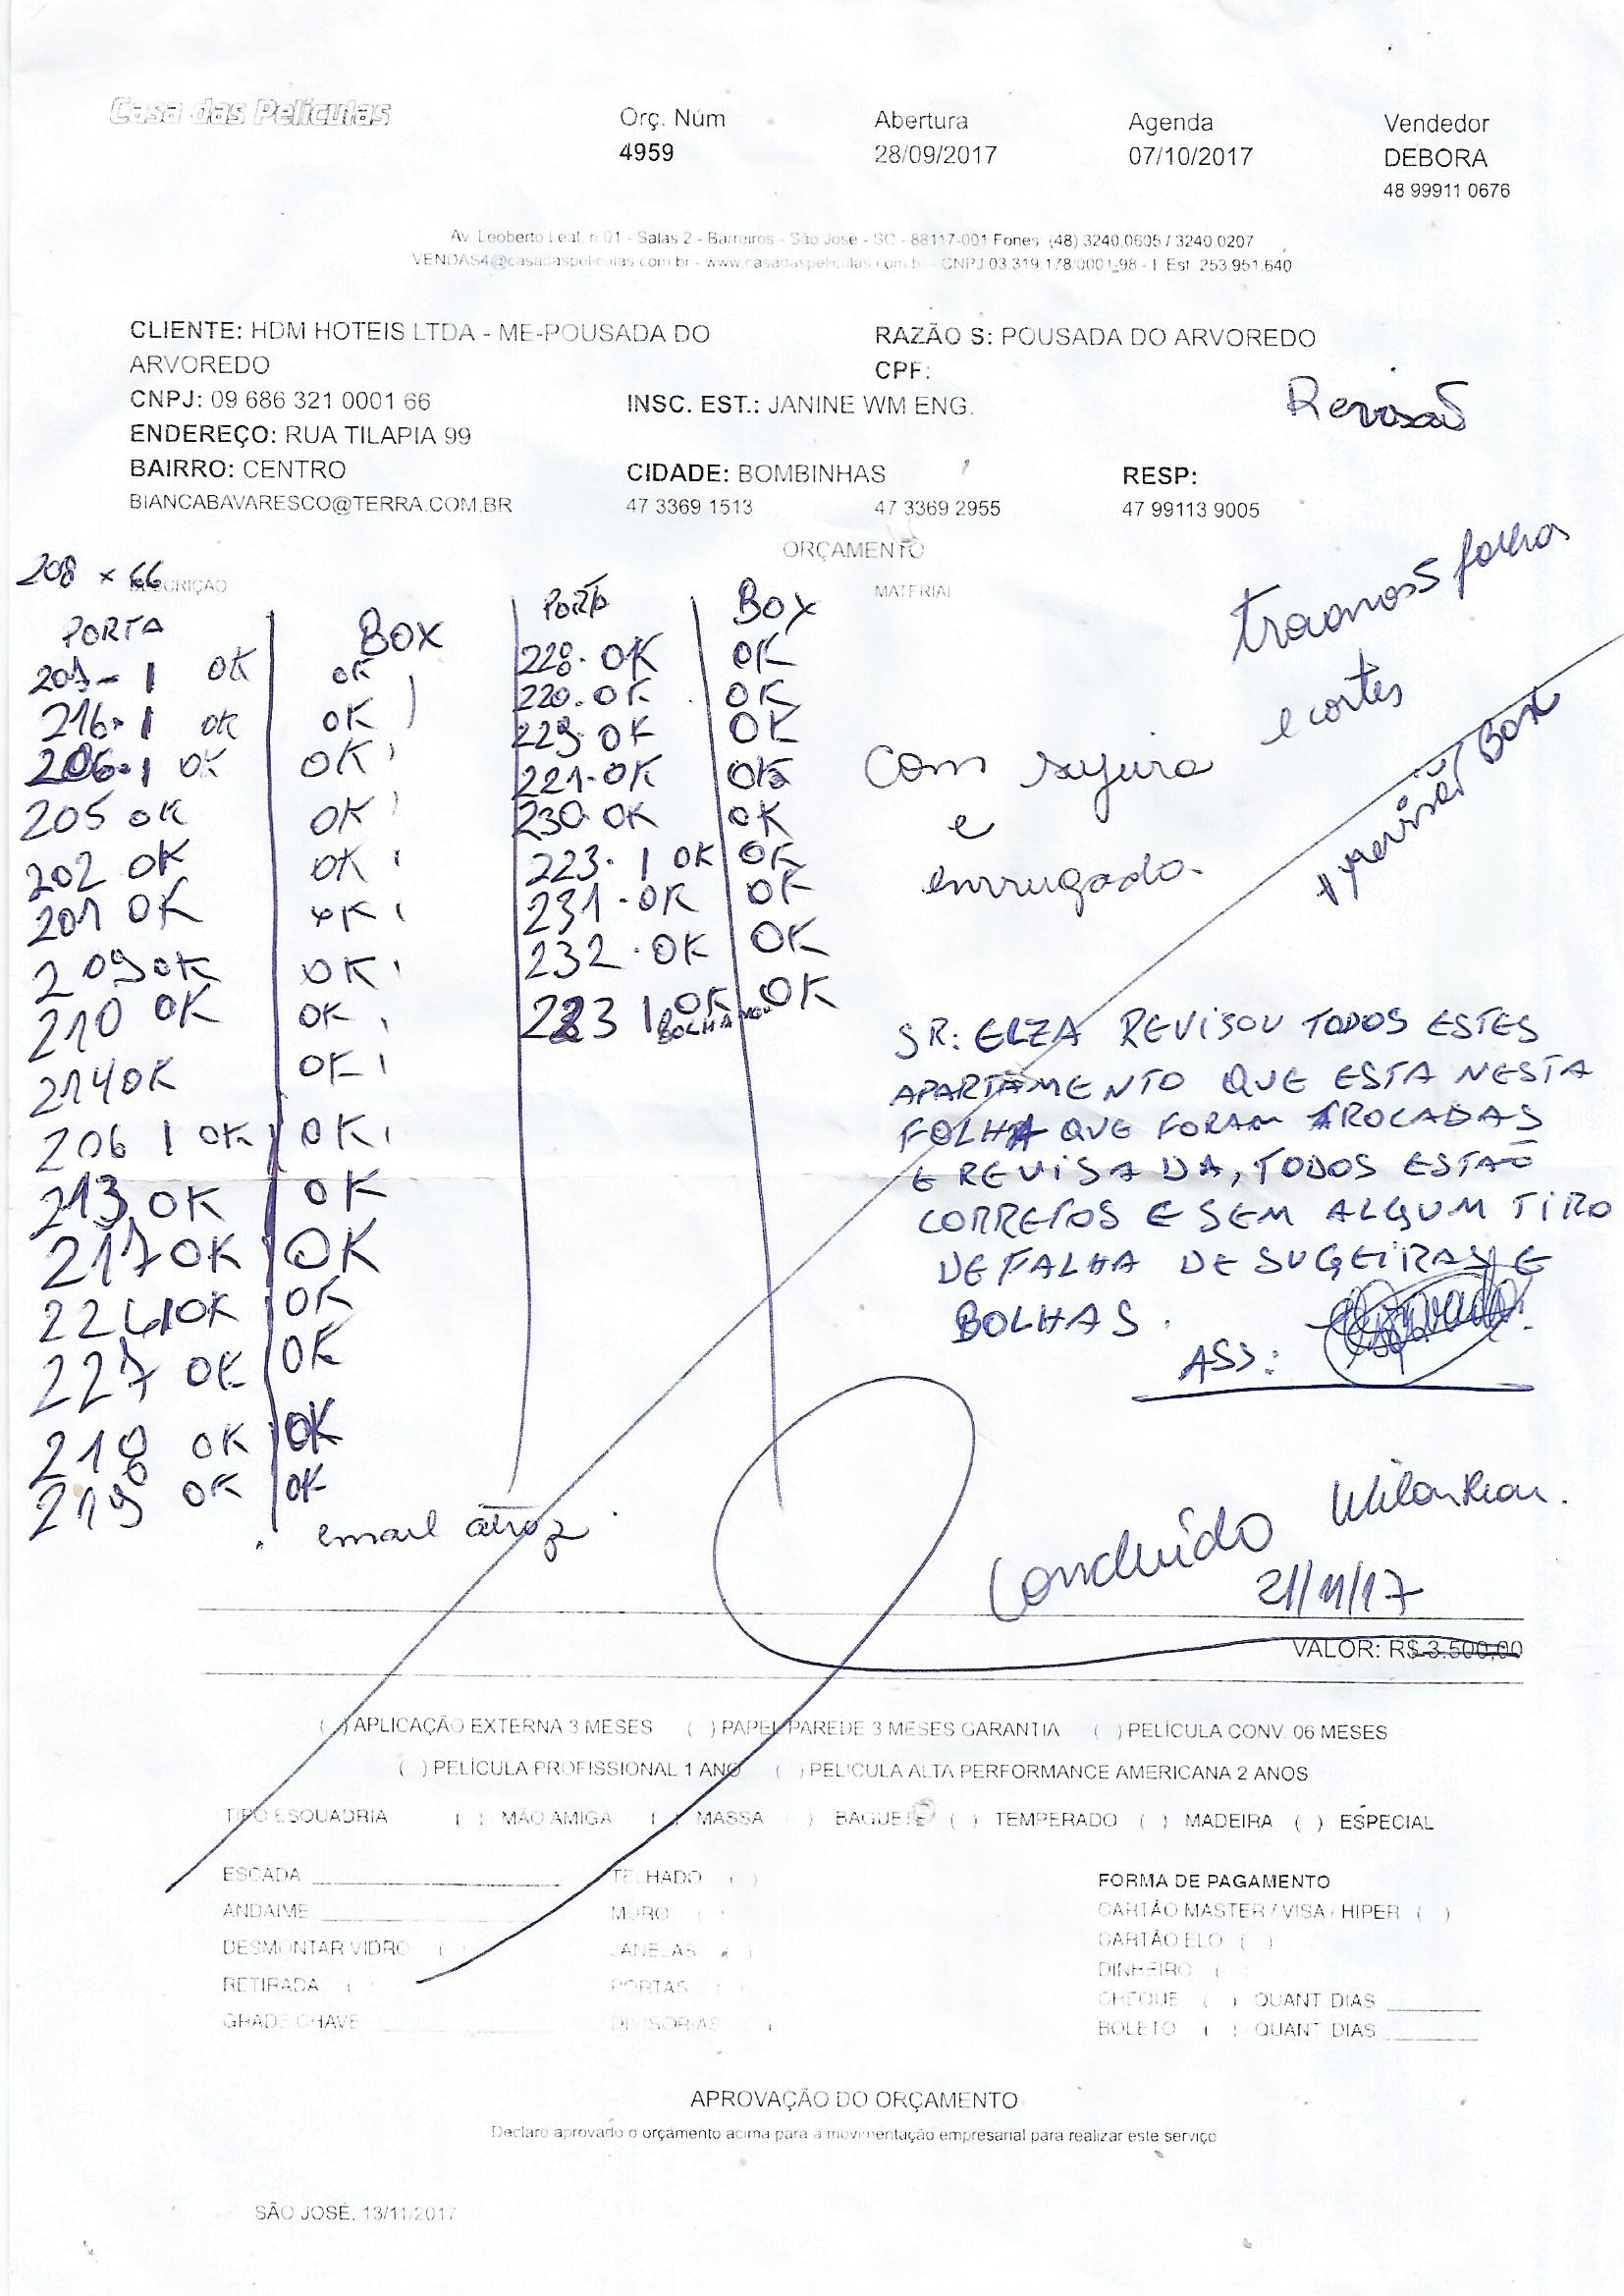 Casa das Películas
Orç. Núm Abertura Agenda Vendedor
4959 28/09/2017 07/10/2017 DEBORA
48 99911 0676
Av. Leoberto Leal, n 01 - Salas 2 - Barreiros - São José - SC - 88117-001 Fones: (48) 3240.0605 / 3240.0207
VENDAS4@casadaspeliculas.com.br - www.casadaspeliculas.com.br - CNPJ 03.319.178/0001-98 - I. Est. 253.951.640
CLIENTE: HDM HOTEIS LTDA - ME-POUSADA DO RAZÃO S: POUSADA DO ARVOREDO
ARVOREDO CPF:
CNPJ: 09 686 321 0001 66 INSC. EST.: JANINE WM ENG.
Revisão
ENDEREÇO: RUA TILAPIA 99
BAIRRO: CENTRO CIDADE: BOMBINHAS RESP:
BIANCABAVARESCO@TERRA.COM.BR 47 3369 1513 47 3369 2955 47 99113 9005
ORÇAMENTO
208 x 66
DESCRIÇÃO MATERIAL
PORTA BOX PORTA BOX
201- 1 OK OK 228. OK OK
216. 1 OK OK 220. OK OK
206. 1 OK OK 229 OK OK
205 OK OK 221. OK OK
202 OK OK 230. OK OK
201 OK OK 223. 1 OK OK
209 OK OK 231. OK OK
210 OK OK 232. OK OK
214 OK OK 223 1 OK OK
BOLHA
206 1 OK OK
213 OK OK
217 OK OK
226 1 OK OK
227 OK OK
218 OK OK
219 OK OK
. email atroz
5 folha
e cortes
com sujeira
e
enrrugado.
revisão Box
SR: ELZA REVISOU TODOS ESTES
APARTAMENTO QUE ESTA NESTA
FOLHA QUE FORAM TROCADAS
E REVISADA, TODOS ESTÃO
CORRETOS E SEM ALGUM TIRO
DE FALHA DE SUGEIRAS E
BOLHAS.
ASS:
Concluído
21/11/17
VALOR: R$ 3.500,00
( ) APLICAÇÃO EXTERNA 3 MESES ( ) PAPEL PAREDE 3 MESES GARANTIA ( ) PELÍCULA CONV. 06 MESES
( ) PELÍCULA PROFISSIONAL 1 ANO ( ) PELICULA ALTA PERFORMANCE AMERICANA 2 ANOS
TIPO ESQUADRIA ( ) MÃO AMIGA ( ) MASSA ( ) BAGUETE ( ) TEMPERADO ( ) MADEIRA ( ) ESPECIAL
ESCADA TELHADO ( ) FORMA DE PAGAMENTO
ANDAIME MURO ( ) CARTÃO MASTER / VISA / HIPER ( )
DESMONTAR VIDRO ( ) JANELAS CARTÃO ELO ( )
RETIRADA ( PORTAS DINHEIRO (
GRADE CHAVE DIVISORIAS CHEQUE ( ) QUANT DIAS
BOLETO ( ) QUANT DIAS
APROVAÇÃO DO ORÇAMENTO
Declaro aprovado o orçamento acima para a movimentação empresarial para realizar este serviço
SÃO JOSÉ, 13/11/2017